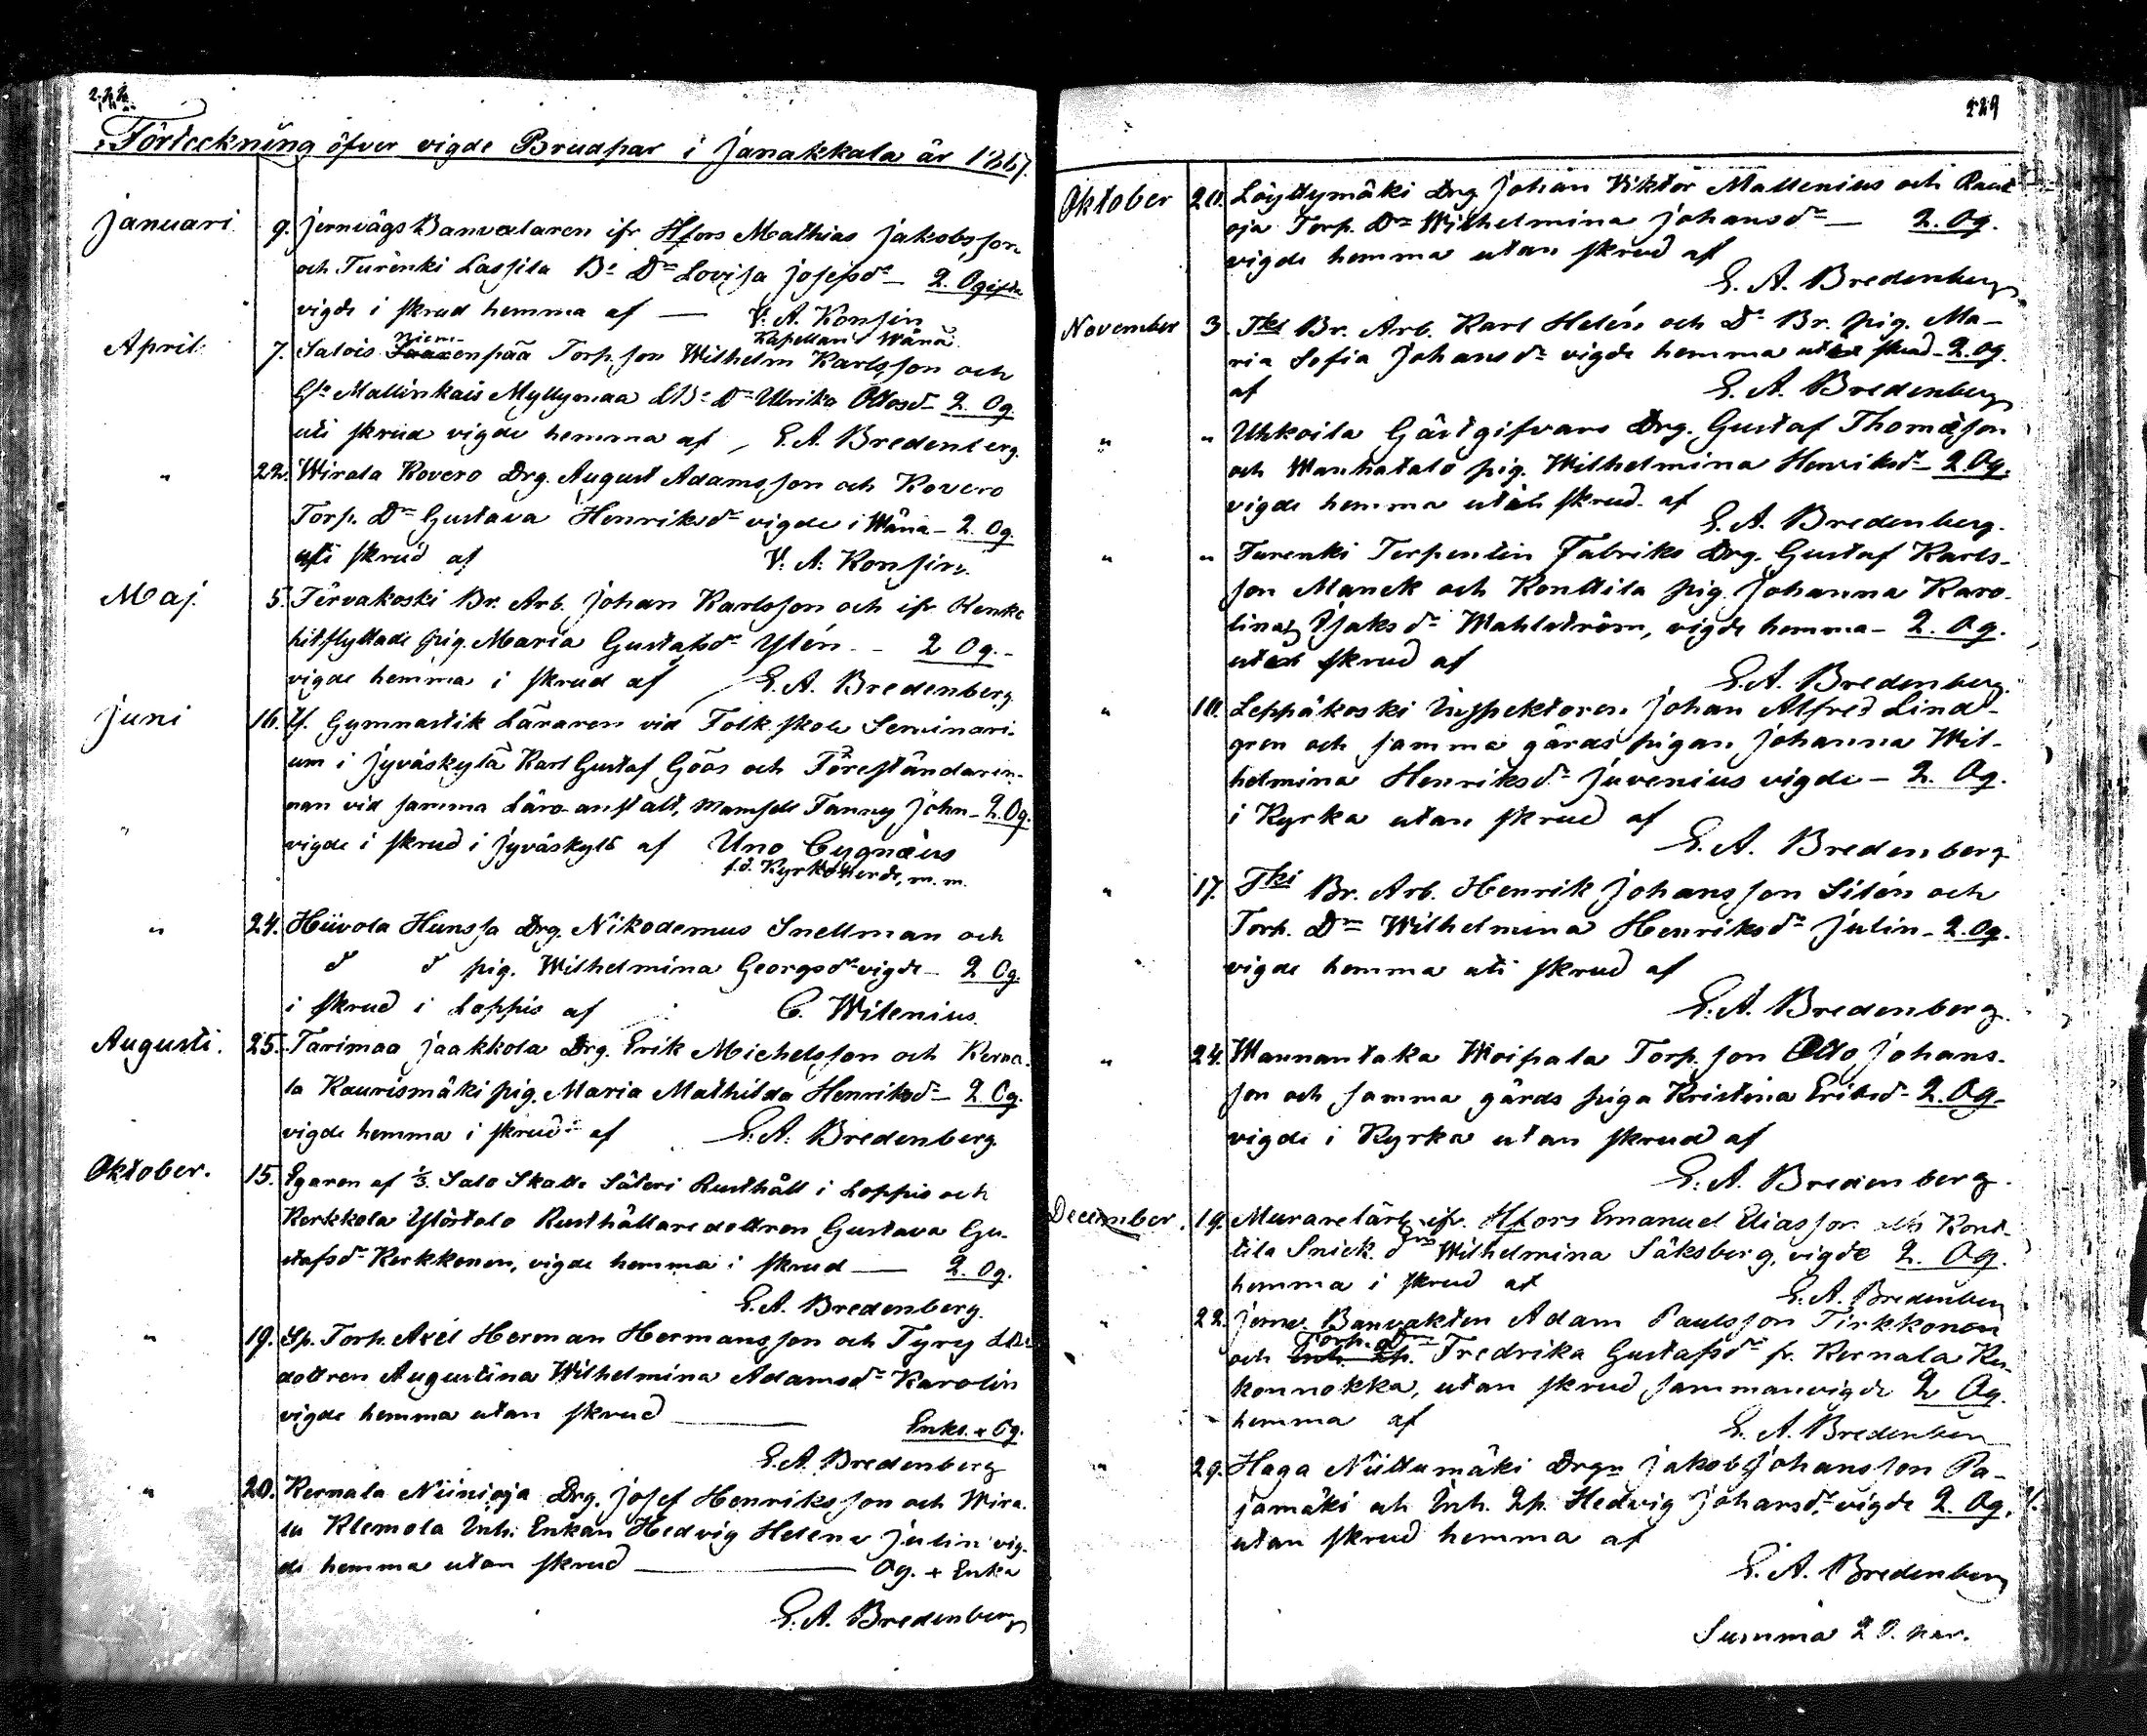 Förteckning öfver vigde Brudpar i Janakkala år 1867.
Januari 9. Jernvägs Banvalaren ifr. Hfors Mathias Jakobsson
och Turenki Lassila Bs Dn Lovisa Josefsdr 2. Ogifte
vigde i skrud hemma af — V. A. Konsin
Kapellan i Wånå
April 7. Salois Niemenpää Torp. son Wilhelm Karlsson och
Mallinkais Myllymaa Dn Ulrika Ottosdr 2. Og.
uti skrud vigde hemma af E. A. Bredenberg.
" 22. Wirala Kovero Drg. August Adamsson och Kovero
Torp. Dn Gustava Henriksdr vigde i Wånå – 2. Og.
uti skrud af V. A. Konsin.
Maj. 5. Tervakoski Br. Arb. Johan Karlsson och ifr. Renko
hitflyttade pig. Maria Gustafsdr Ylén – 2 Og. –
vigde hemma i skrud af E. A. Bredenberg.
Juni 16. Gymnastik Läraren vid Folk skole Seminari-
um i Jyväskylä Karl Gustaf Göös och Föreståndarin-
nan vid samma Läro-anstalt, Mamsell Fanny John – 2. Og.
vigde i skrud i Jyväskylä af Uno Cygnæus
f.d. Kyrkoherde, m. m.
" 24. Hiivola Hunssa Drg. Nikodemus Snellman och
d d pig. Wilhelmina Georgsdr vigde – 2 Og.
i skrud i Loppis af C. Witenius.
Augusti. 25. Tarimaa Jaakkola Drg. Erik Michelsson och Kerna-
la Kaurismäki pig. Maria Mathilda Henriksdr – 2 Og.
vigde hemma i skrud af E. A. Bredenberg
Oktober. 15. Egaren af ⅓ Salo Skatte Säteri Rusthåll i Loppis och
Kerkkola Ylöstalo Rusthållaredottren Gustava Gu-
stafsdr Kerkkonen, vigde hemma i skrud — 2. Og.
E. A. Bredenberg.
" 19. Sp. Torp. Axel Herman Hermansson och Tyry
dottren Augustina Wilhelmina Adamsdr Karolin
vigde hemma utan skrud — Enkl. + Og.
E. A. Bredenberg
" 20. Kernala Niinioja Drg. Josef Henriksson och Wira-
la Klemola Inh. Enkan Hedvig Helena Julin vig-
de hemma utan skrud — Og. + Enka
E. A. Bredenberg
229
Oktober 20. Löyttymäki Drg. Johan Viktor Mattenius och Raut
oja Torp. Dn Wilhelmina Johansdr — 2. Og.
vigde hemma utan skrud af
E. A. Bredenberg
November 3. Tki Br. Arb. Karl Helén och Dn Br. pig. Ma-
ria Sofia Johansdr vigde hemma utan skrud – 2. Og.
af E. A. Bredenberg
" " Uhkoila Gästgifvare Drg. Gustaf Thomasson
och Wanhatalo pig. Wilhelmina Henriksdr – 2 Og.
vigde hemma utan skrud af
E. A. Bredenberg.
" " Turenki Terpentin Fabriks Drg. Gustaf Karls-
son Manek och Konttila pig. Johanna Karo-
lina Isaksdr Wahlström, vigde hemma – 2. Og.
utan skrud af
E. A. Bredenberg.
" 10. Leppäkoski Inspektoren Johan Alfred Lind-
gren och samma gårds pigan Johanna Wil-
helmina Henriksdr Juvenius vigde – 2. Og.
i Kyrka utan skrud af
E. A. Bredenberg
" 17. Tki Br. Arb. Henrik Johansson Silén och
Torp. Dn Wilhelmina Henriksdr Julin – 2. Og.
vigde hemma uti skrud af
E. A. Bredenberg.
" 24. Wanantaka Woipala Torp. son Otto Johans-
son och samma gårds piga Kristina Eriksdr 2. Og –
vigde i Kyrka utan skrud af
E. A. Bredenberg.
December. 19. Murarelärl. ifr. Hfors Emanuel Eliasson och Kont-
tila Snick. drn Wilhelmina Säksberg, vigde 2. Og.
hemma i skrud af
E. A. Bredenberg
" 22. Jernv. Banvakten Adam Paulsson Tirkkonen
och Torp. drn Fredrika Gustafsdr fr. Kernala Ku-
konnokka, utan skrud sammanvigde 2 Og.
hemma af E. A. Bredenberg
" 29. Haga Niittumäki Drgn Jakob Johansson Pa-
jamäki och Inh. Qp. Hedvig Johansdr vigde 2. Og.
utan skrud hemma af
E. A. Bredenberg
Summa 20. par.